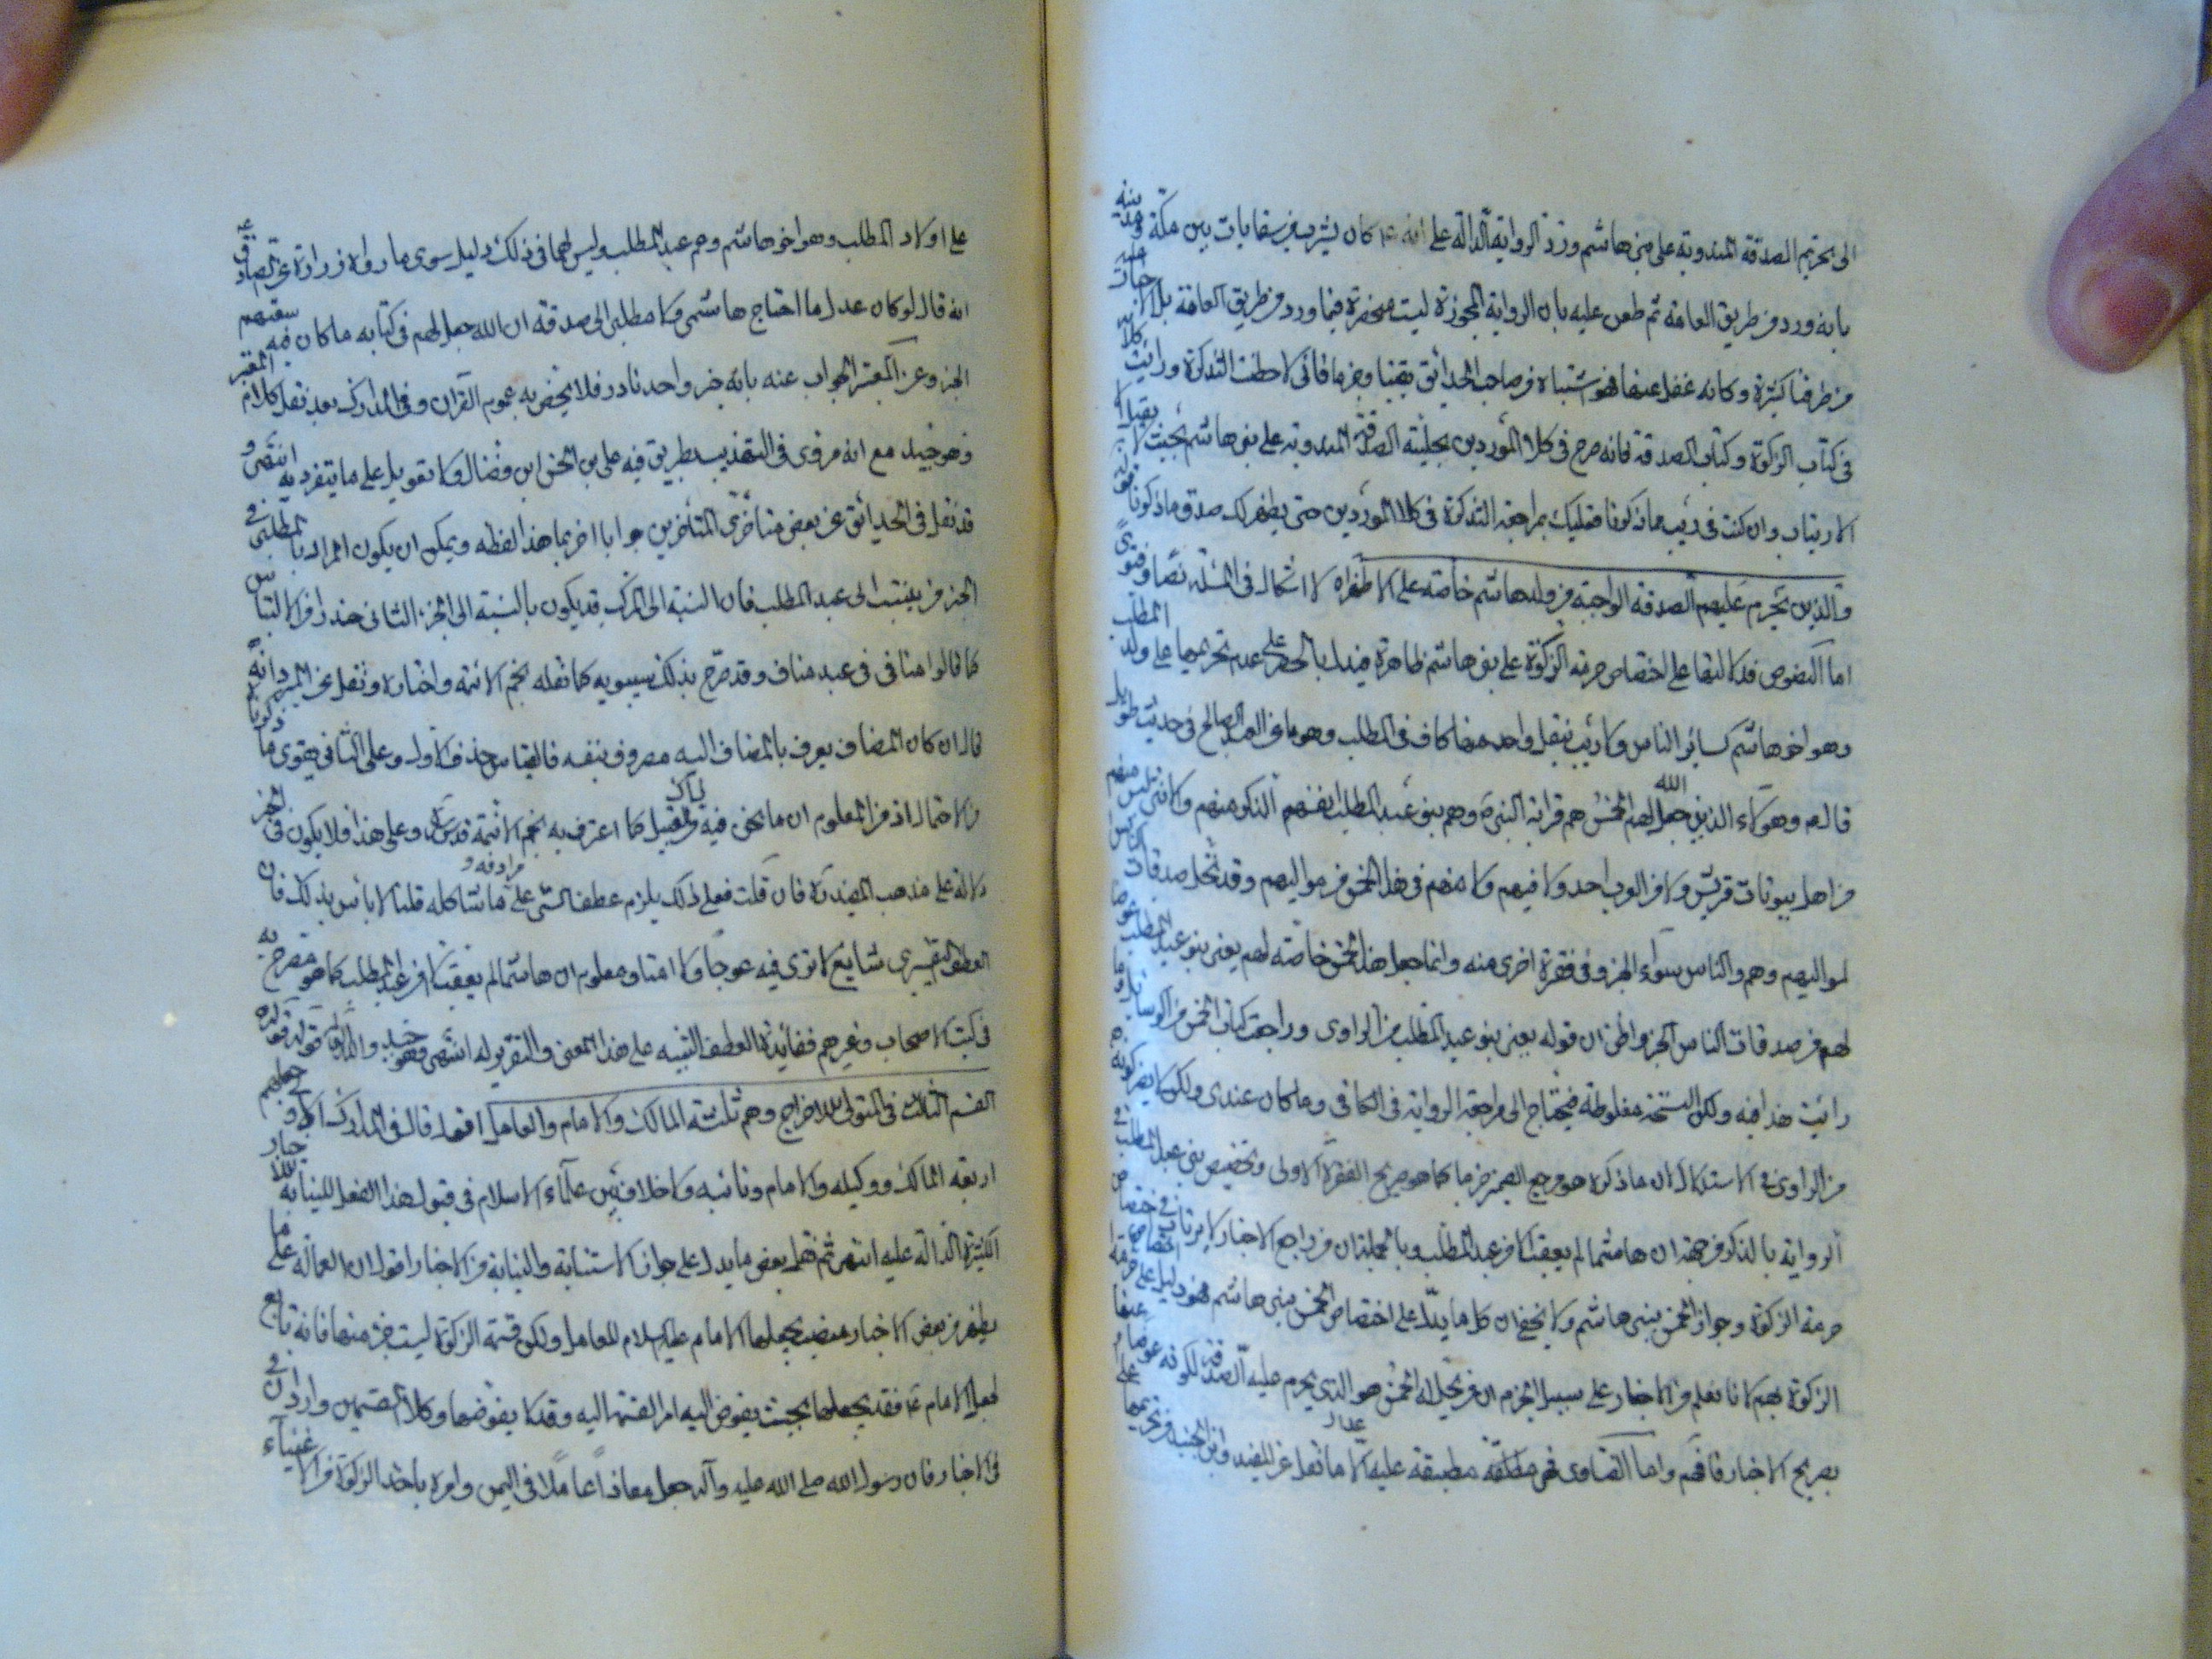 الى تحريم الصدقة المندوبة على بني هاشم وردّ الرواية الدالة على انه كان يشرب من سقايات بين مكة ومدينة
بانه ورد من طريق العامة ثم طعن عليه بان الرواية المجوزة ليست منحصرة فيما ورد من طريق العامة بل الاخبار عليه
من طرقنا كثيرة وكانه غفل عنها فهو اشتباه من صاحب الحدائق يقينا وجزما فاني لاحظت التذكرة ورايت كلامه
في كتاب الزكوة وكتاب الصدقة فانه صرح في كلا الموردين بحلية الصدقة المندوبة على بني هاشم بحيث لا يقبل
الارتياب وان كنت في ريب مما ذكرنا فعليك بمراجعة التذكرة في كلا الموردين حتى يظهر لك صدق ما ذكرنا قوله
والذين يحرم عليهم الصدقة الواجبة من ولد هاشم خاصة على الاظهر اه لا اشكال في المسئلة نصا وفتوى
اما النصوص فدلالتها على اختصاص حرمة الزكوة على بني هاشم ظاهرة فيدل بالحصر على عدم تحريمها على ولد المطلب
وهو اخو هاشم كسائر الناس ولا ريب نقل واحد منها كاف في المطلب وهو ما عن العبد الصالح في حديث طويل
قال وهؤلاء الذين جعل الله لهم الخمس هم قرابة النبي وهم بنو عبد المطلب انفسهم الذكر منهم والانثى ليس منهم
من اهل بيوتات قريش ولا من العرب احد ولا فيهم ولا منهم في هذا الخمس من مواليهم وقد تحل صدقات الناس
لمواليهم وهم والناس سواء الخبر وفي فقرة اخرى منه وانما جعل هذا الخمس خاصة لهم يعني بنو عبد المطلب عوضا
لهم من صدقات الناس الخبر واظن ان قوله يعني بنو عبد المطلب من الراوي وراجعت كتاب الخمس من الوسائل وما
رايت هذا فيه ولكن النسخة مغلوطة فيحتاج الى مراجعة الرواية في الكافي وما كان عندي ولكن لا يضر كونه
من الراوي في الاستدلال لان ما ذكره هو مرجع الضمير جزما كما هو صريح الفقرة الاولى وتخصيص بني عبد المطلب في
الرواية بالذكر من جهة ان هاشما لم يعقب الا من عبد المطلب وبالجملة ان من راجع الاخبار لا يرتاب في اختصاص
حرمة الزكوة وجواز الخمس ببني هاشم ولا يخفى ان كل ما يدل على اختصاص الخمس ببني هاشم فهو دليل على اختصاص حرمة
الزكوة بهم لانا نعلم من الاخبار على سبيل الجزم ان من يحل له الخمس هو الذي يحرم عليه الصدقة لكونه عوضا عنها
بصريح الاخبار فافهم واما الفتاوى فهي مطبقة عليه الا ما نقل عن المفيد وابن الجنيد من تحريمها على
على اولاد المطلب وهو اخو هاشم وعم عبد المطلب وليس لهما في ذلك دليل سوى ما رواه زرارة عن الصادق
انه قال لو كان عدل ما احتاج هاشمي ولا مطلبي الى صدقة ان الله جعل لهم في كتابه ما كان فيه سعتهم
الخبر وعن المعتبر الجواب عنه بانه خبر واحد نادر فلا يخص به عموم القرآن وفي المدارك بعد نقل كلام المعتبر
وهو جيد مع انه مروي في التهذيب بطريق فيه علي بن الحسن ابن فضال ولا تعويل على ما يتفرد به انتهى و
قد نقل في الحدائق عن بعض متأخري المتأخرين جوابا اخر بما هذا لفظه ويمكن ان يكون المراد بالمطلبي في
الخبر من ينتسب الى عبد المطلب فان النسبة الى المركب قد يكون بالنسبة الى الجزء الثاني حذرا من الالتباس
كما قالوا منافي في عبد مناف وقد صرح بذلك سيبويه كما نقله نجم الائمة واختاره ونقل عن المبرد انه
قال ان كان المضاف يعرف بالمضاف اليه معروف بنفسه فالقياس حذف الاول وعلى الثاني يقوى ما ذكرناه
من الاحتمال اذ من المعلوم ان ما نحن فيه من ذاك القبيل كما اعترف به نجم الائمة قدس سره وعلى هذا فلا يكون في الخبر
دلالة على مذهب المفيد فان قلت فعلى ذلك يلزم عطف الشئ على مرادفه وما شاكله قلنا لا باس بذلك فان
العطف التفسيري شايع لا ترى فيه عوجا ولا امتا ومعلوم ان هاشما لم يعقب الا من عبد المطلب كما هو مصرح به
في كتب الاصحاب وغيرهم ففائدة العطف التنبيه على هذا المعنى والتقرير له انتهى وهو جيد
القسم الثالث في المتولي للاخراج وهم ثلثة المالك والامام والعامل اقول قال في المدارك جعلهم
اربعة المالك ووكيله والامام ونائبه ولا خلاف بين علماء الاسلام في قبول هذا الفعل للنيابة
الكثيرة الدالة عليه انتهى ثم نقل بعض ما يدل على جواز الاستنابة والنيابة من الاخبار اقول ان العمالة على ما
يظهر من بعض الاخبار منصب يجعلها الامام عليه السلام للعامل ولكن قسمة الزكوة ليست جزء منها فانه تابع
لجعل الامام ع فقد يجعلها بحيث يفوض اليه امر القسمة اليه وقد لا يفوضها وكلا القسمين واردان في
في الاخبار فان رسول الله صلى الله عليه وآله جعل معاذا عاملا في اليمن وامره باخذ الزكوة من الاغنياء